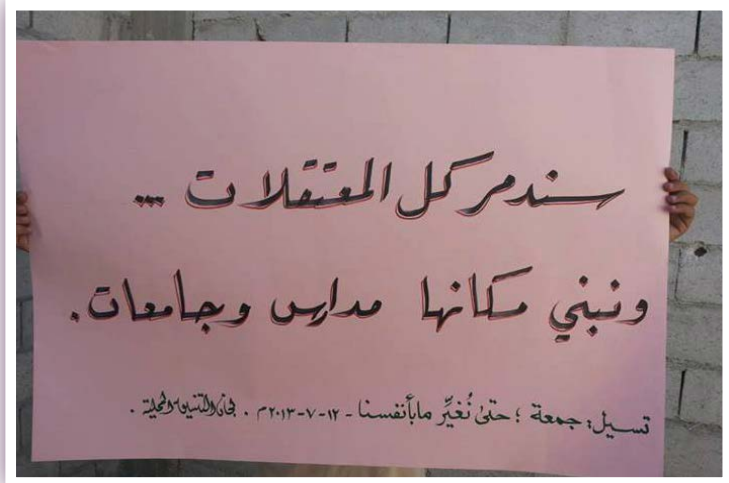 سندمر كل المعتقلات ...
ونبني مكانها مدارس وجامعات.
تسيل: جمعة ؛ حتىٰ نُغيِّر مابأنفسنا - ١٢-٧-٢٠١٣م . لجان التنسيق المحلية .